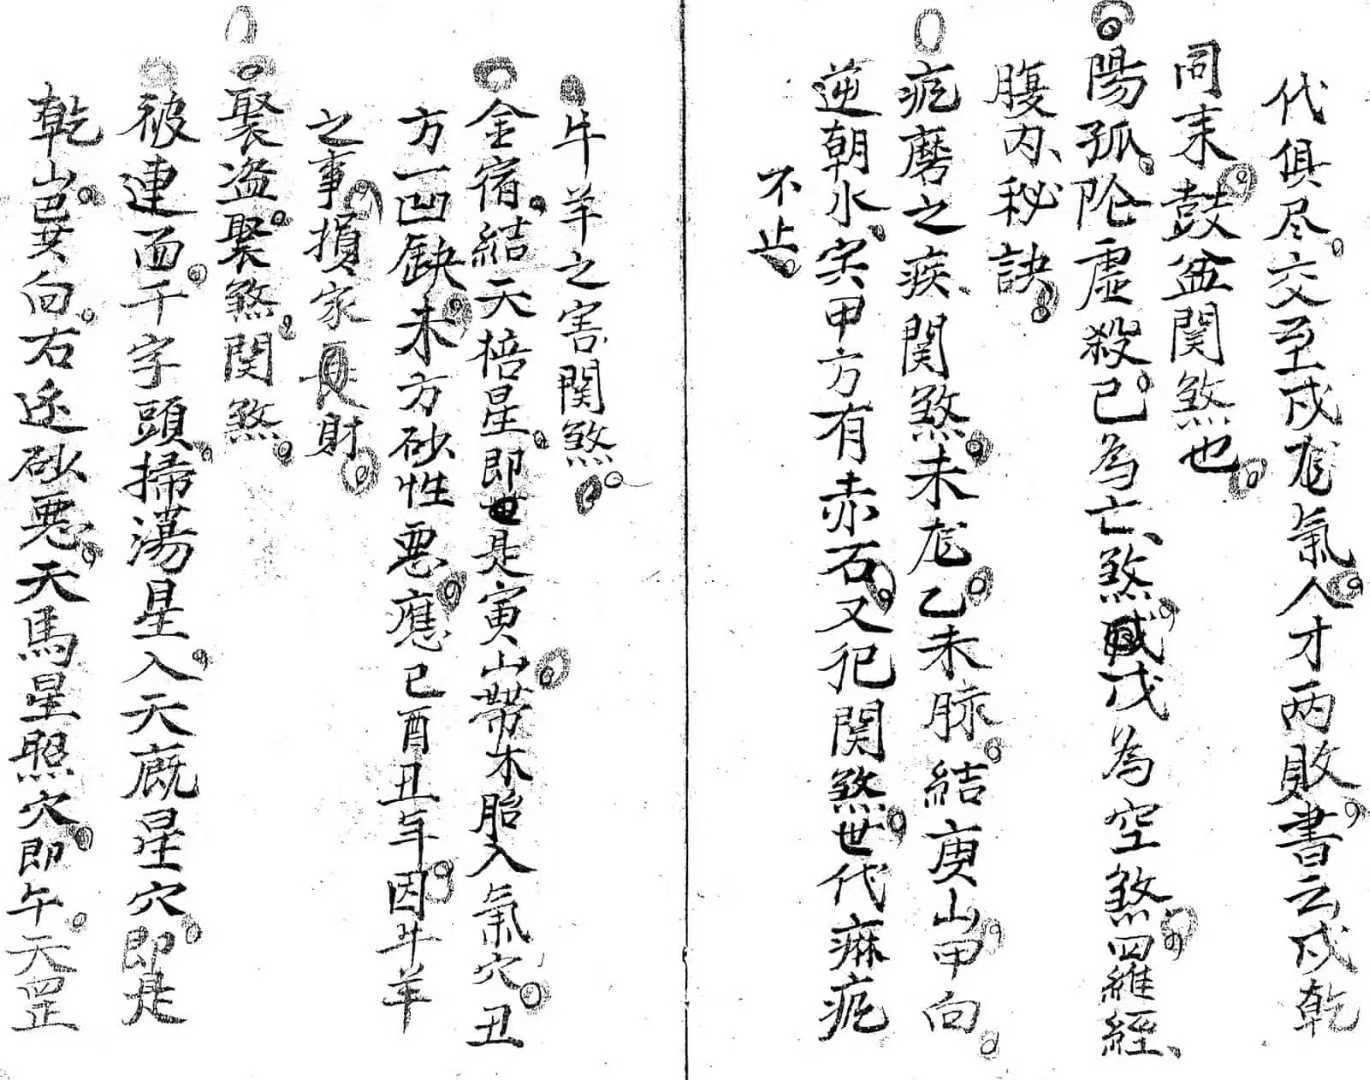 代俱尽交至戍龙氣人才兩敗書云戍乾
同耒鼓盆関煞也
陽孤陰虛殺已為亡煞戊為空煞四維經
腹內秘訣
疙磨之疾関煞未龙乙未脉結庚山甲向
逆朝水寅甲方有赤石又犯関煞世代痳疙
不止
牛羊之害関煞
金宿結天掊星即是寅山帶木胎入氣穴丑
方一凹缺未方砂性悪應已酉丑年因牛羊
之事損家長財
聚盗聚煞関煞
被連面干字頭掃蕩星入天厩星穴即是
乾山巽向右逆砂悪天馬星照穴即午天罡